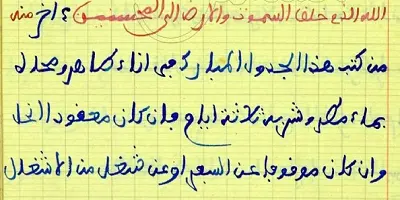 الله الذي خلق السموت والارض الى المحسنين ؛ اخر منه
من كتب هذا الجدول المبارك في اناء طاهر ومحاه
بماء مطر وشربه ثلاثة ايام فان كان معقود انحل
وان كان موقوفا عن السفر او عن شغل من الاشغال